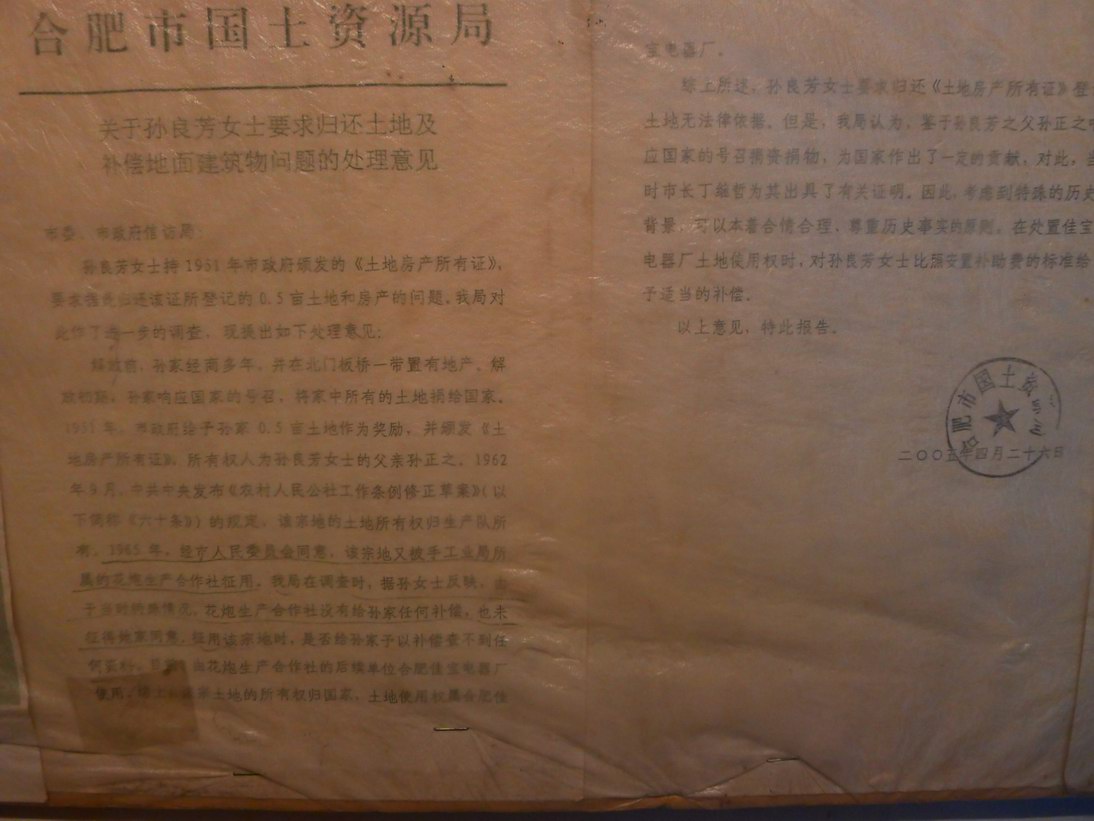 合肥市国土资源局
关于孙良芳女士要求归还土地及
补偿地面建筑物问题的处理意见
市委、市政府信访局:
孙良芳女士持1951年市政府颁发的《土地房产所有证》,
要求我局归还该证所登记的0.5亩土地和房产的问题。我局对
此作了进一步的调查,现提出如下处理意见:
解放前,孙家经商多年,并在北门板桥一带置有地产、解
放初期,孙家响应国家的号召,将家中所有的土地捐给国家。
1951年,市政府给予孙家0.5亩土地作为奖励,并颁发《土
地房产所有证》,所有权人为孙良芳女士的父亲孙正之。1962
年9月,中共中央发布《农村人民公社工作条例修正草案》(以
下简称《六十条》)的规定,该宗地的土地所有权归生产队所
有。1965年,经市人民委员会同意,该宗地又被手工业局所
属的花炮生产合作社征用。我局在调查时,据孙女士反映,由
于当时的情况,花炮生产合作社没有给孙家任何补偿,也未
征得她家同意。征用该宗地时,是否给孙家予以补偿查不到任
何资料。目前,由花炮生产合作社的后续单位合肥佳宝电器厂
使用。土地的所有权归国家,土地使用权属合肥佳
宝电器厂。
综上所述,孙良芳女士要求归还《土地房产所有证》登
土地无法律依据。但是,我局认为,鉴于孙良芳之父孙正之
应国家的号召捐资捐物,为国家作出了一定的贡献,对此,当
时市长丁继哲为其出具了有关证明。因此,考虑到特殊的历史
背景,可以本着合情合理、尊重历史事实的原则,在处置佳宝
电器厂土地使用权时,对孙良芳女士比照安置补助费的标准给
予适当的补偿。
以上意见,特此报告。
合肥市国土资
二〇〇五年四月二十六日